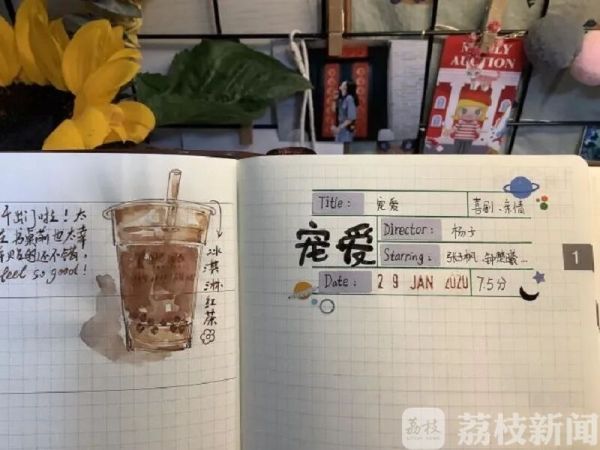 MOLLY
AUCTION
出门啦！太
feel so good!
冰淇淋红茶
Title: 宠爱 喜剧、亲情
宠爱
Director: 杨子
Starring: 张子枫 钟楚曦...
Date: 29 JAN 2020 7.5分
1
荔枝
荔枝新闻